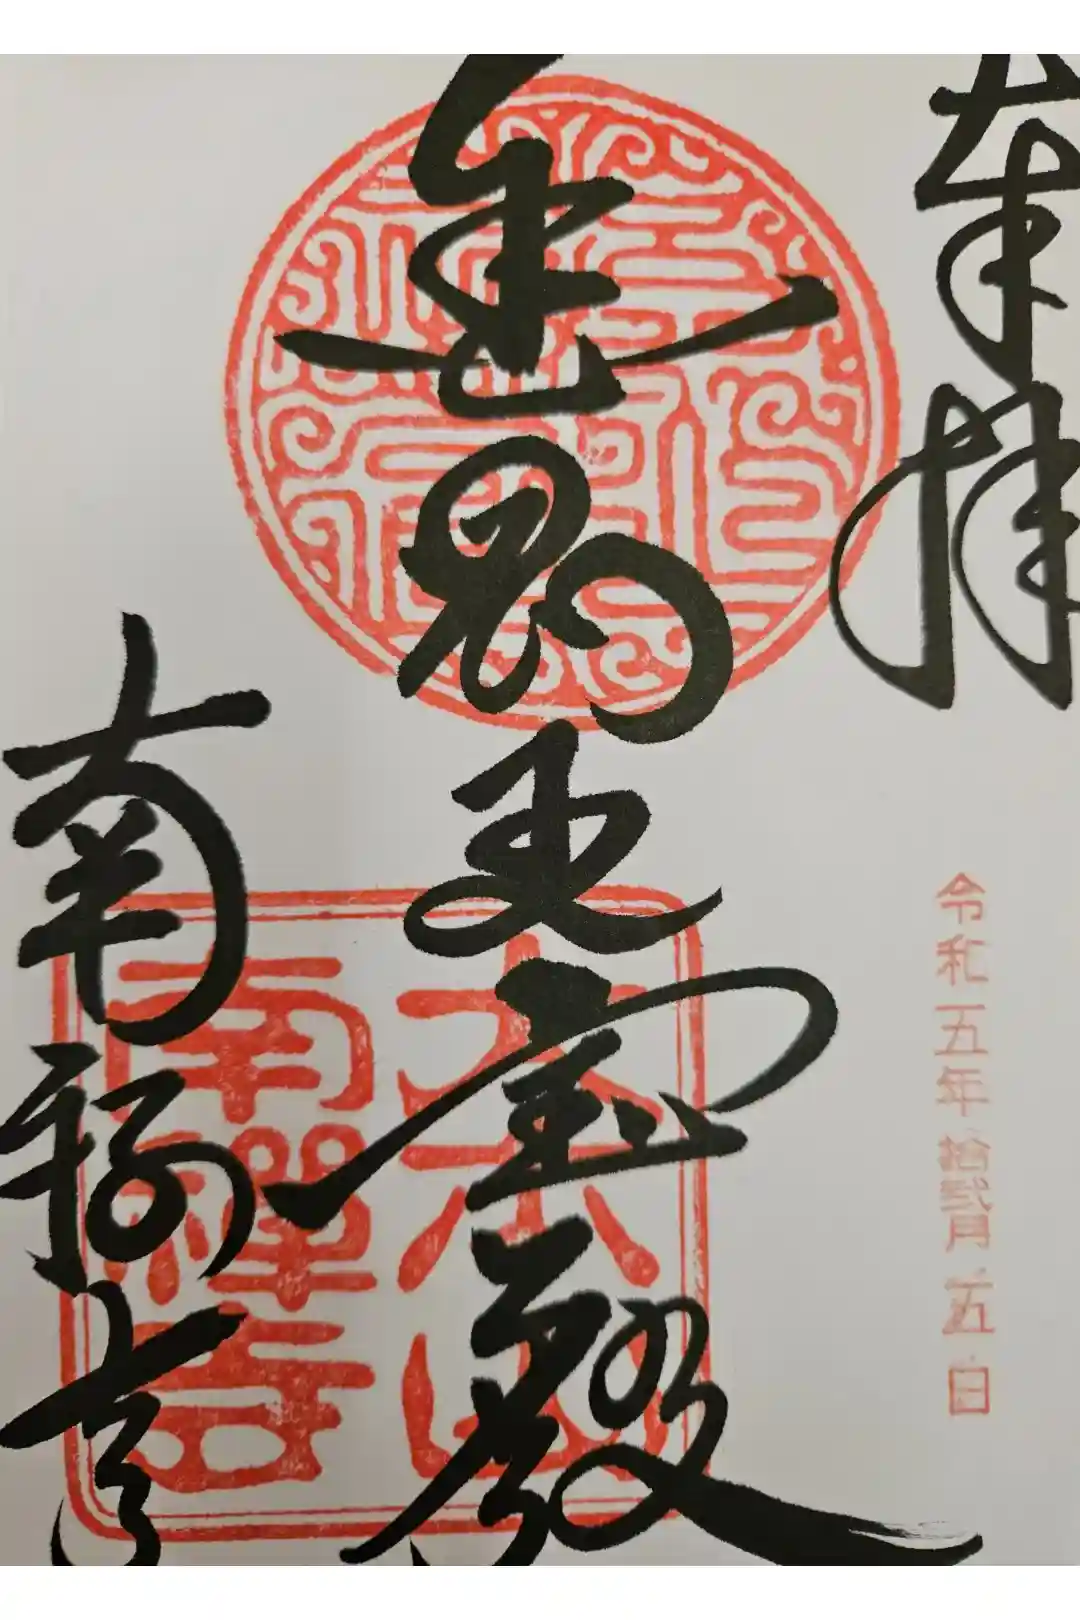 奉拝
令和五年拾弐月五日
金剛王宝殿
南禅寺
大本山
南禪寺